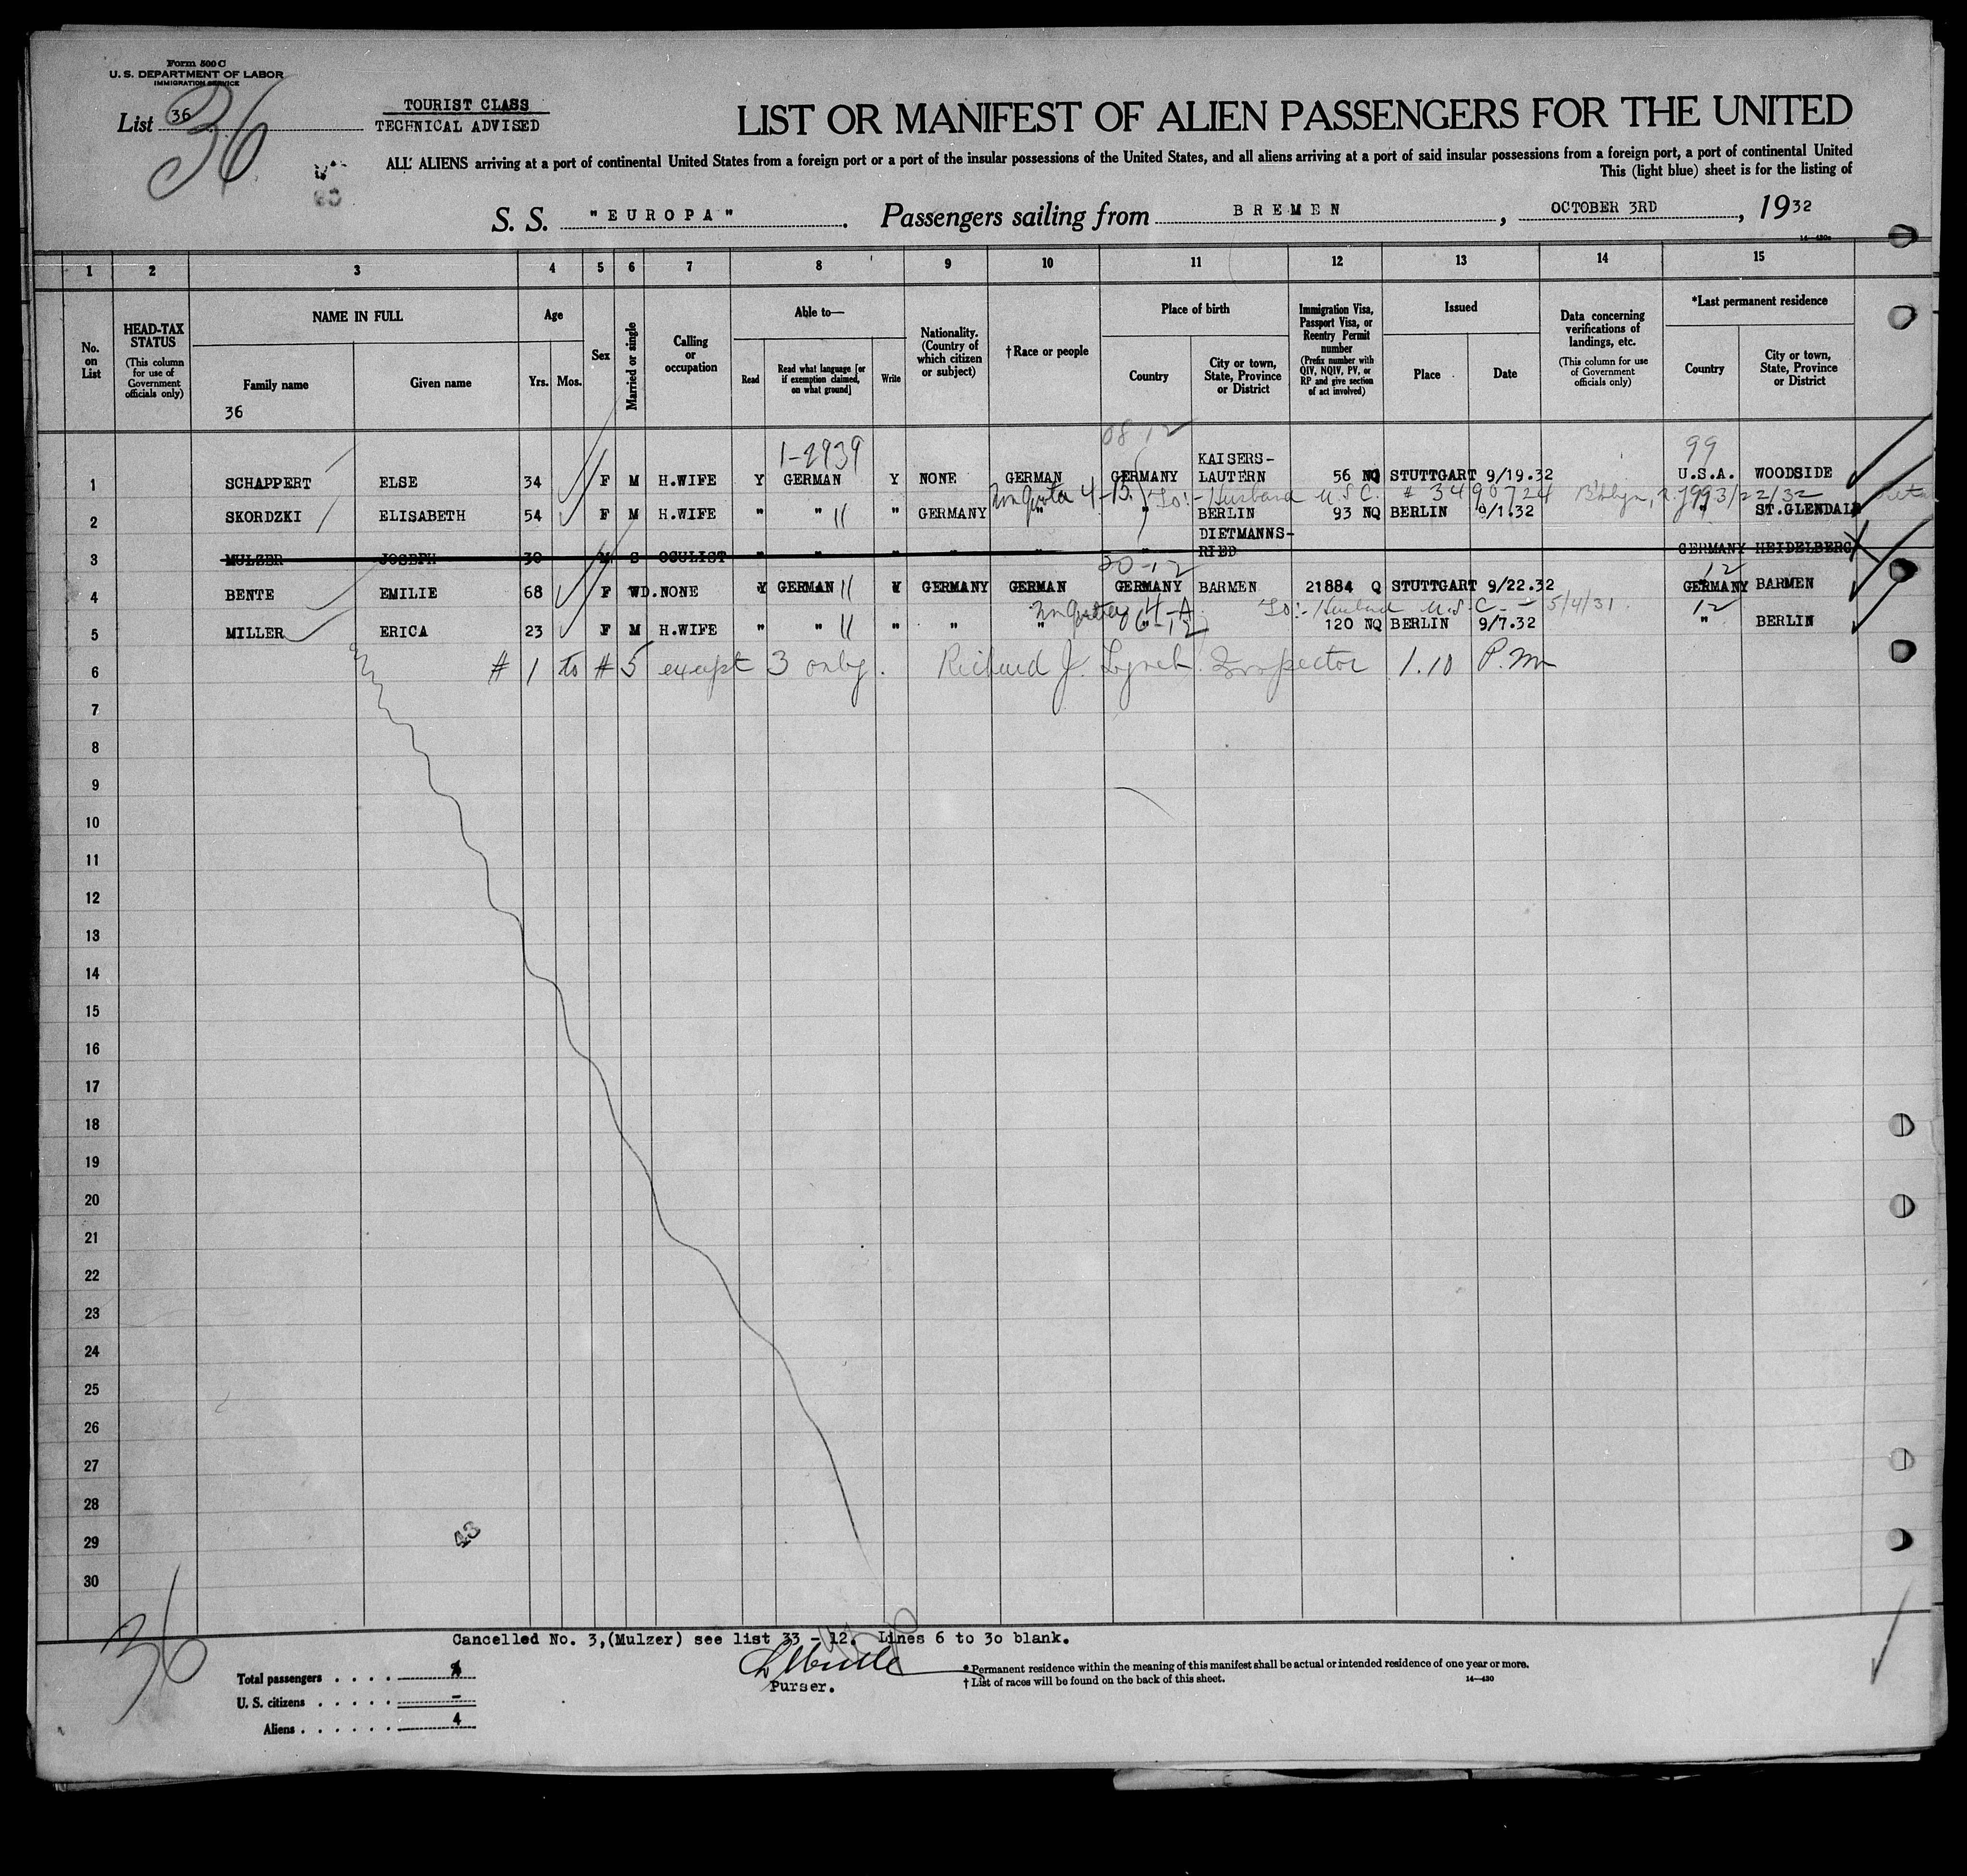 Form 500 C
U. S. DEPARTMENT OF LABOR
IMMIGRATION SERVICE
List 36
36
TOURIST CLASS
TECHNICAL ADVISED
LIST OR MANIFEST OF ALIEN PASSENGERS FOR THE UNITED
ALL ALIENS arriving at a port of continental United States from a foreign port or a port of the insular possessions of the United States, and all aliens arriving at a port of said insular possessions from a foreign port, a port of continental United
This (light blue) sheet is for the listing of
S. S. "EUROPA". Passengers sailing from BREMEN, OCTOBER 3RD, 1932
1 2 3 4 5 6 7 8 9 10 11 12 13 14 15
No. on List
HEAD-TAX STATUS (This column for use of Government officials only)
NAME IN FULL
Family name
36
Given name
Age
Yrs. Mos.
Sex
Married or single
Calling or occupation
Able to—
Read
Read what language [or if exemption claimed, on what ground]
Write
Nationality. (Country of which citizen or subject)
† Race or people
Place of birth
Country
City or town, State, Province or District
Immigration Visa, Passport Visa, or Reentry Permit number (Prefix number with QIV, NQIV, PV, or RP and give section of act involved)
Issued
Place
Date
Data concerning verifications of landings, etc. (This column for use of Government officials only)
*Last permanent residence
Country
City or town, State, Province or District
1-2939 08 12 99
1 SCHAPPERT ELSE 34 F M H.WIFE Y GERMAN Y NONE GERMAN GERMANY KAISERS-LAUTERN 56 NQ STUTTGART 9/19.32 U.S.A. WOODSIDE
4-B. To:- Husband U.S.C. # 3490724
2 SKORDZKI ELISABETH 54 F M H.WIFE " " " GERMANY " " BERLIN 93 NQ BERLIN 9/1.32 " ST.GLENDALE
3 MULZER JOSEPH 30 M S OCULIST " " " " " " DIETMANNS-RIED GERMANY HEIDELBERG
20-12 12
4 BENTE EMILIE 68 F WD. NONE Y GERMAN Y GERMANY GERMAN GERMANY BARMEN 21884 Q STUTTGART 9/22.32 GERMANY BARMEN
4-A To:- Husband U.S.C. - 5/4/31. 12
5 MILLER ERICA 23 F M H.WIFE " " " " " " 6-12 120 NQ BERLIN 9/7.32 " BERLIN
6 # 1 to # 5 except 3 only. Richard J. Lynch Inspector 1.10 P.M
7
8
9
10
11
12
13
14
15
16
17
18
19
20
21
22
23
24
25
26
27
28
29
43
30
36
Cancelled No. 3,(Mulzer) see list 33 - 12. Lines 6 to 30 blank.
Total passengers . . . .
U. S. citizens . . . . . -
Aliens . . . . . . 4
Purser.
* Permanent residence within the meaning of this manifest shall be actual or intended residence of one year or more.
† List of races will be found on the back of this sheet.
14—430